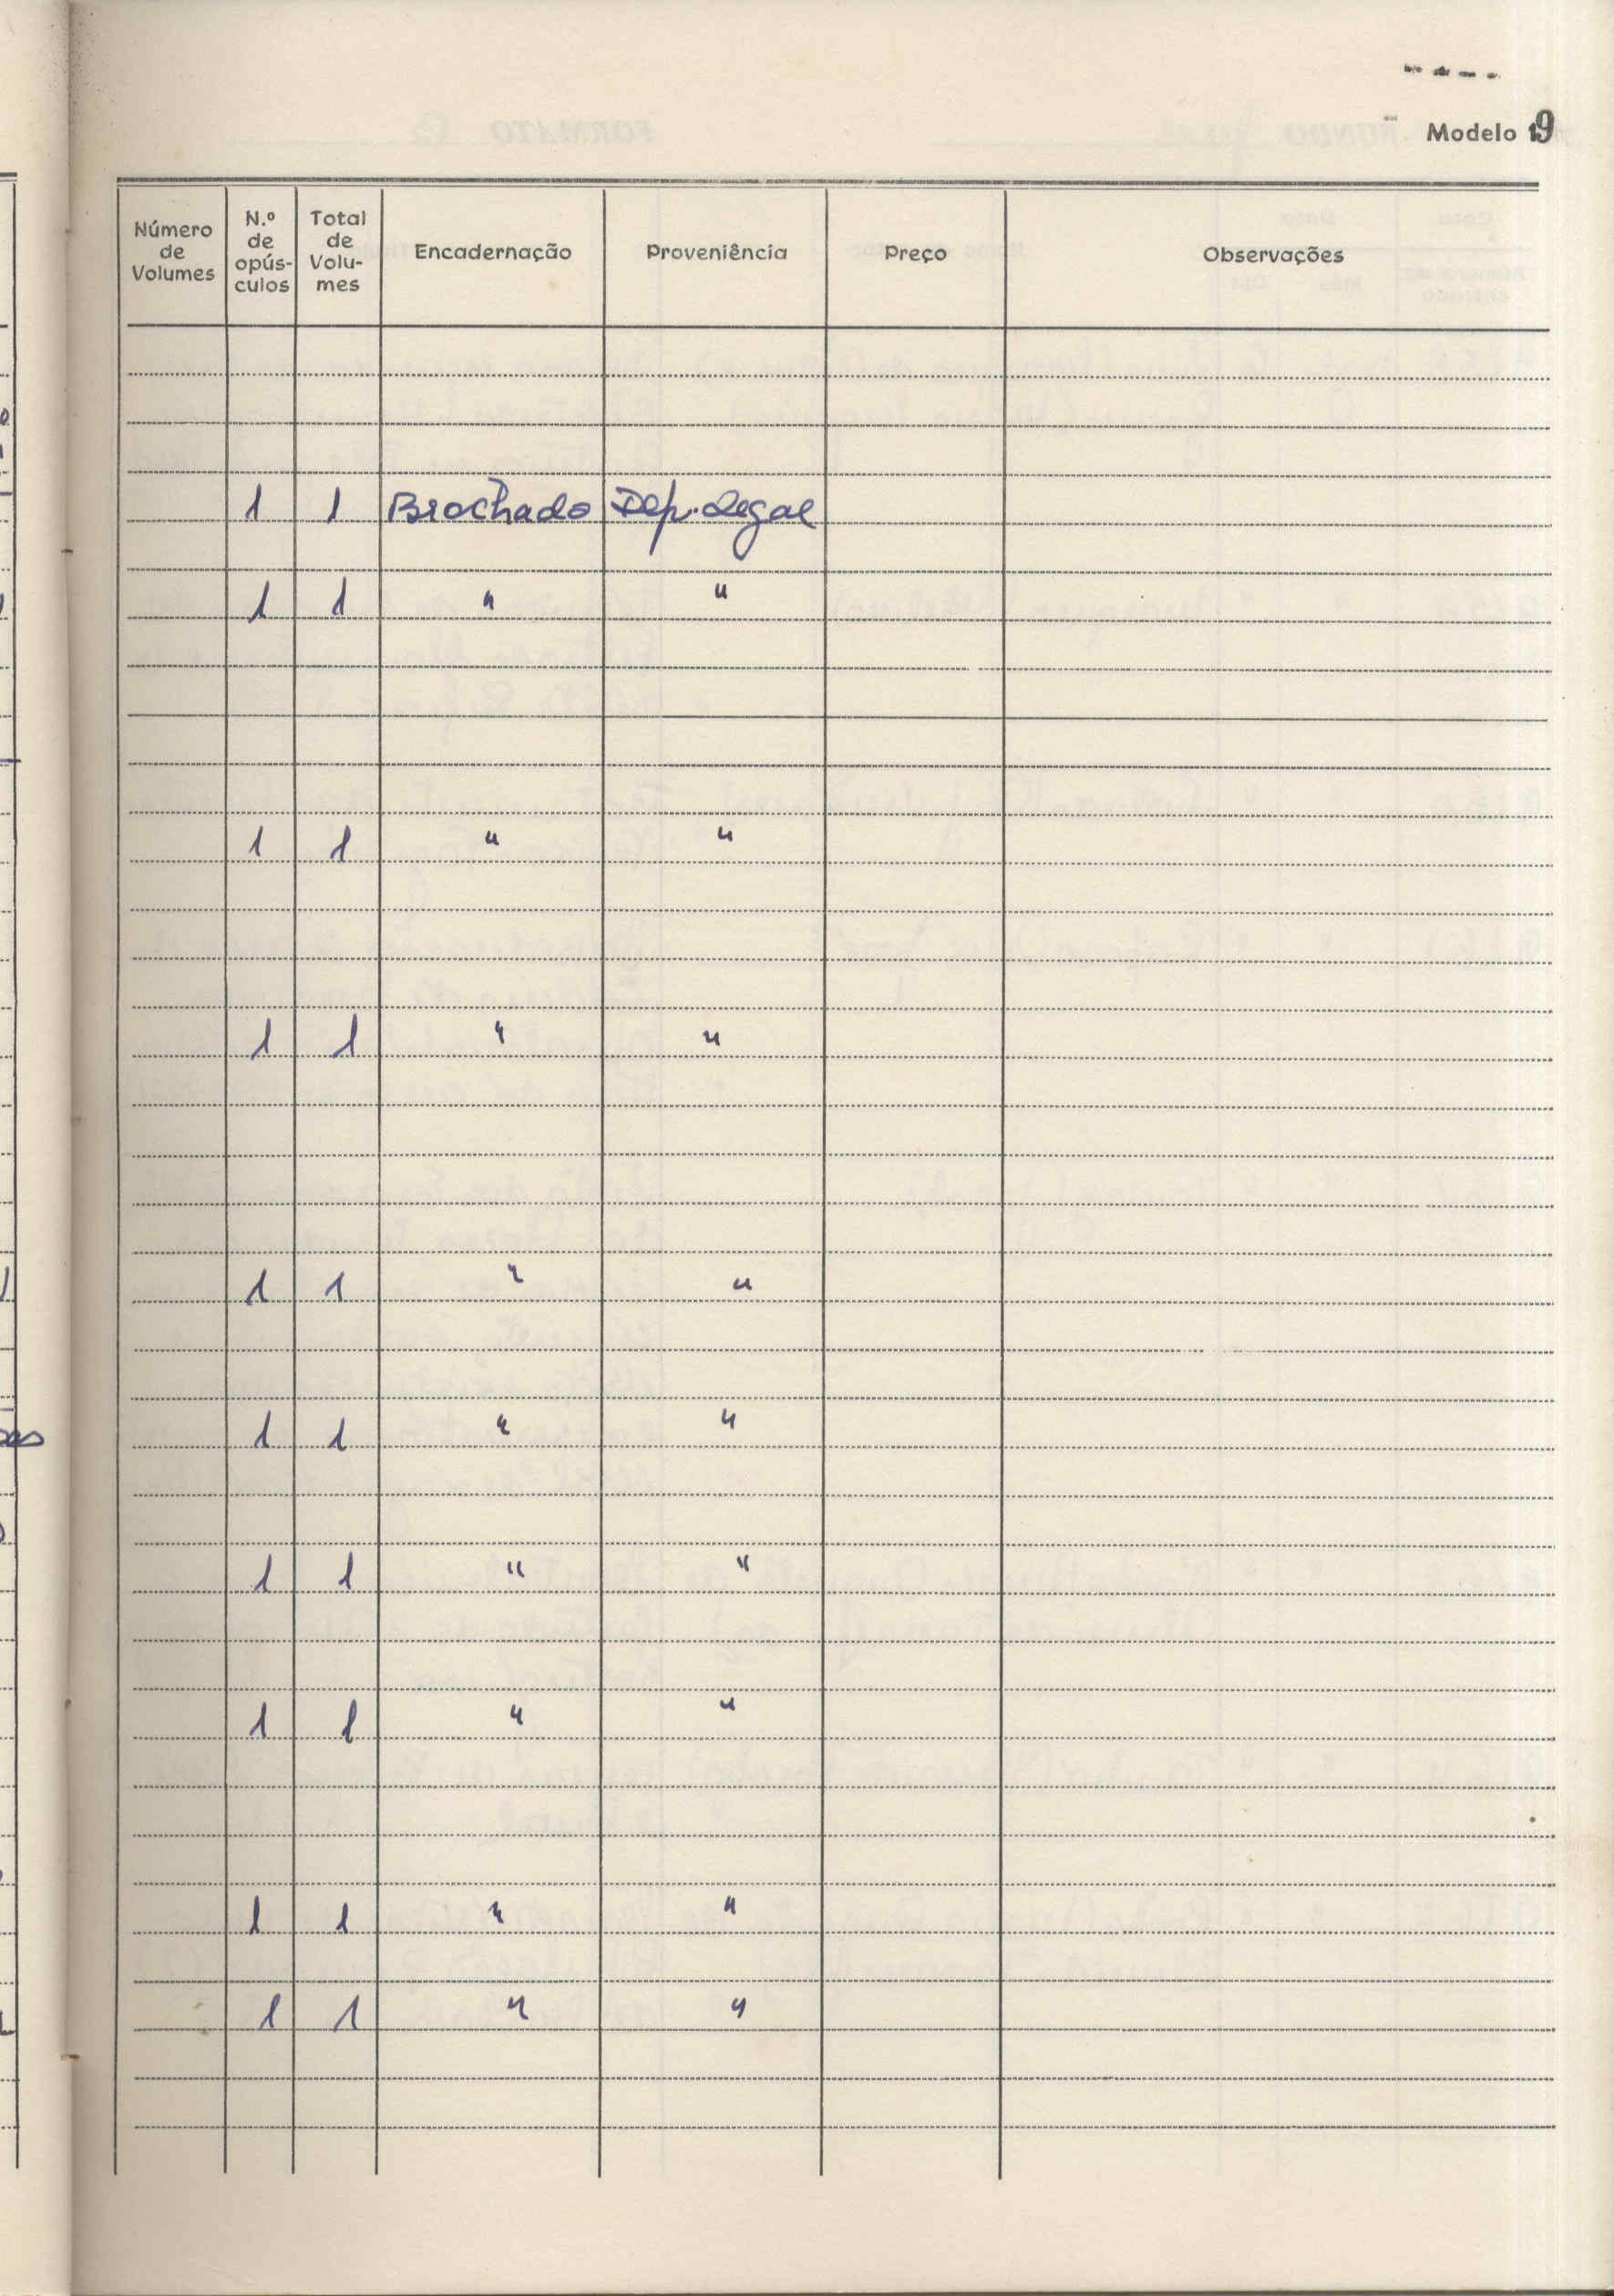 Modelo 19
Número de Volumes | N.º de opús-culos | Total de Volu-mes | Encadernação | Proveniência | Preço | Observações
1 | 1 | Brochado | Dep. Legal
1 | 1 | " | "
1 | 1 | " | "
1 | 1 | " | "
1 | 1 | " | "
1 | 1 | " | "
1 | 1 | " | "
1 | 1 | " | "
1 | 1 | " | "
1 | 1 | " | "